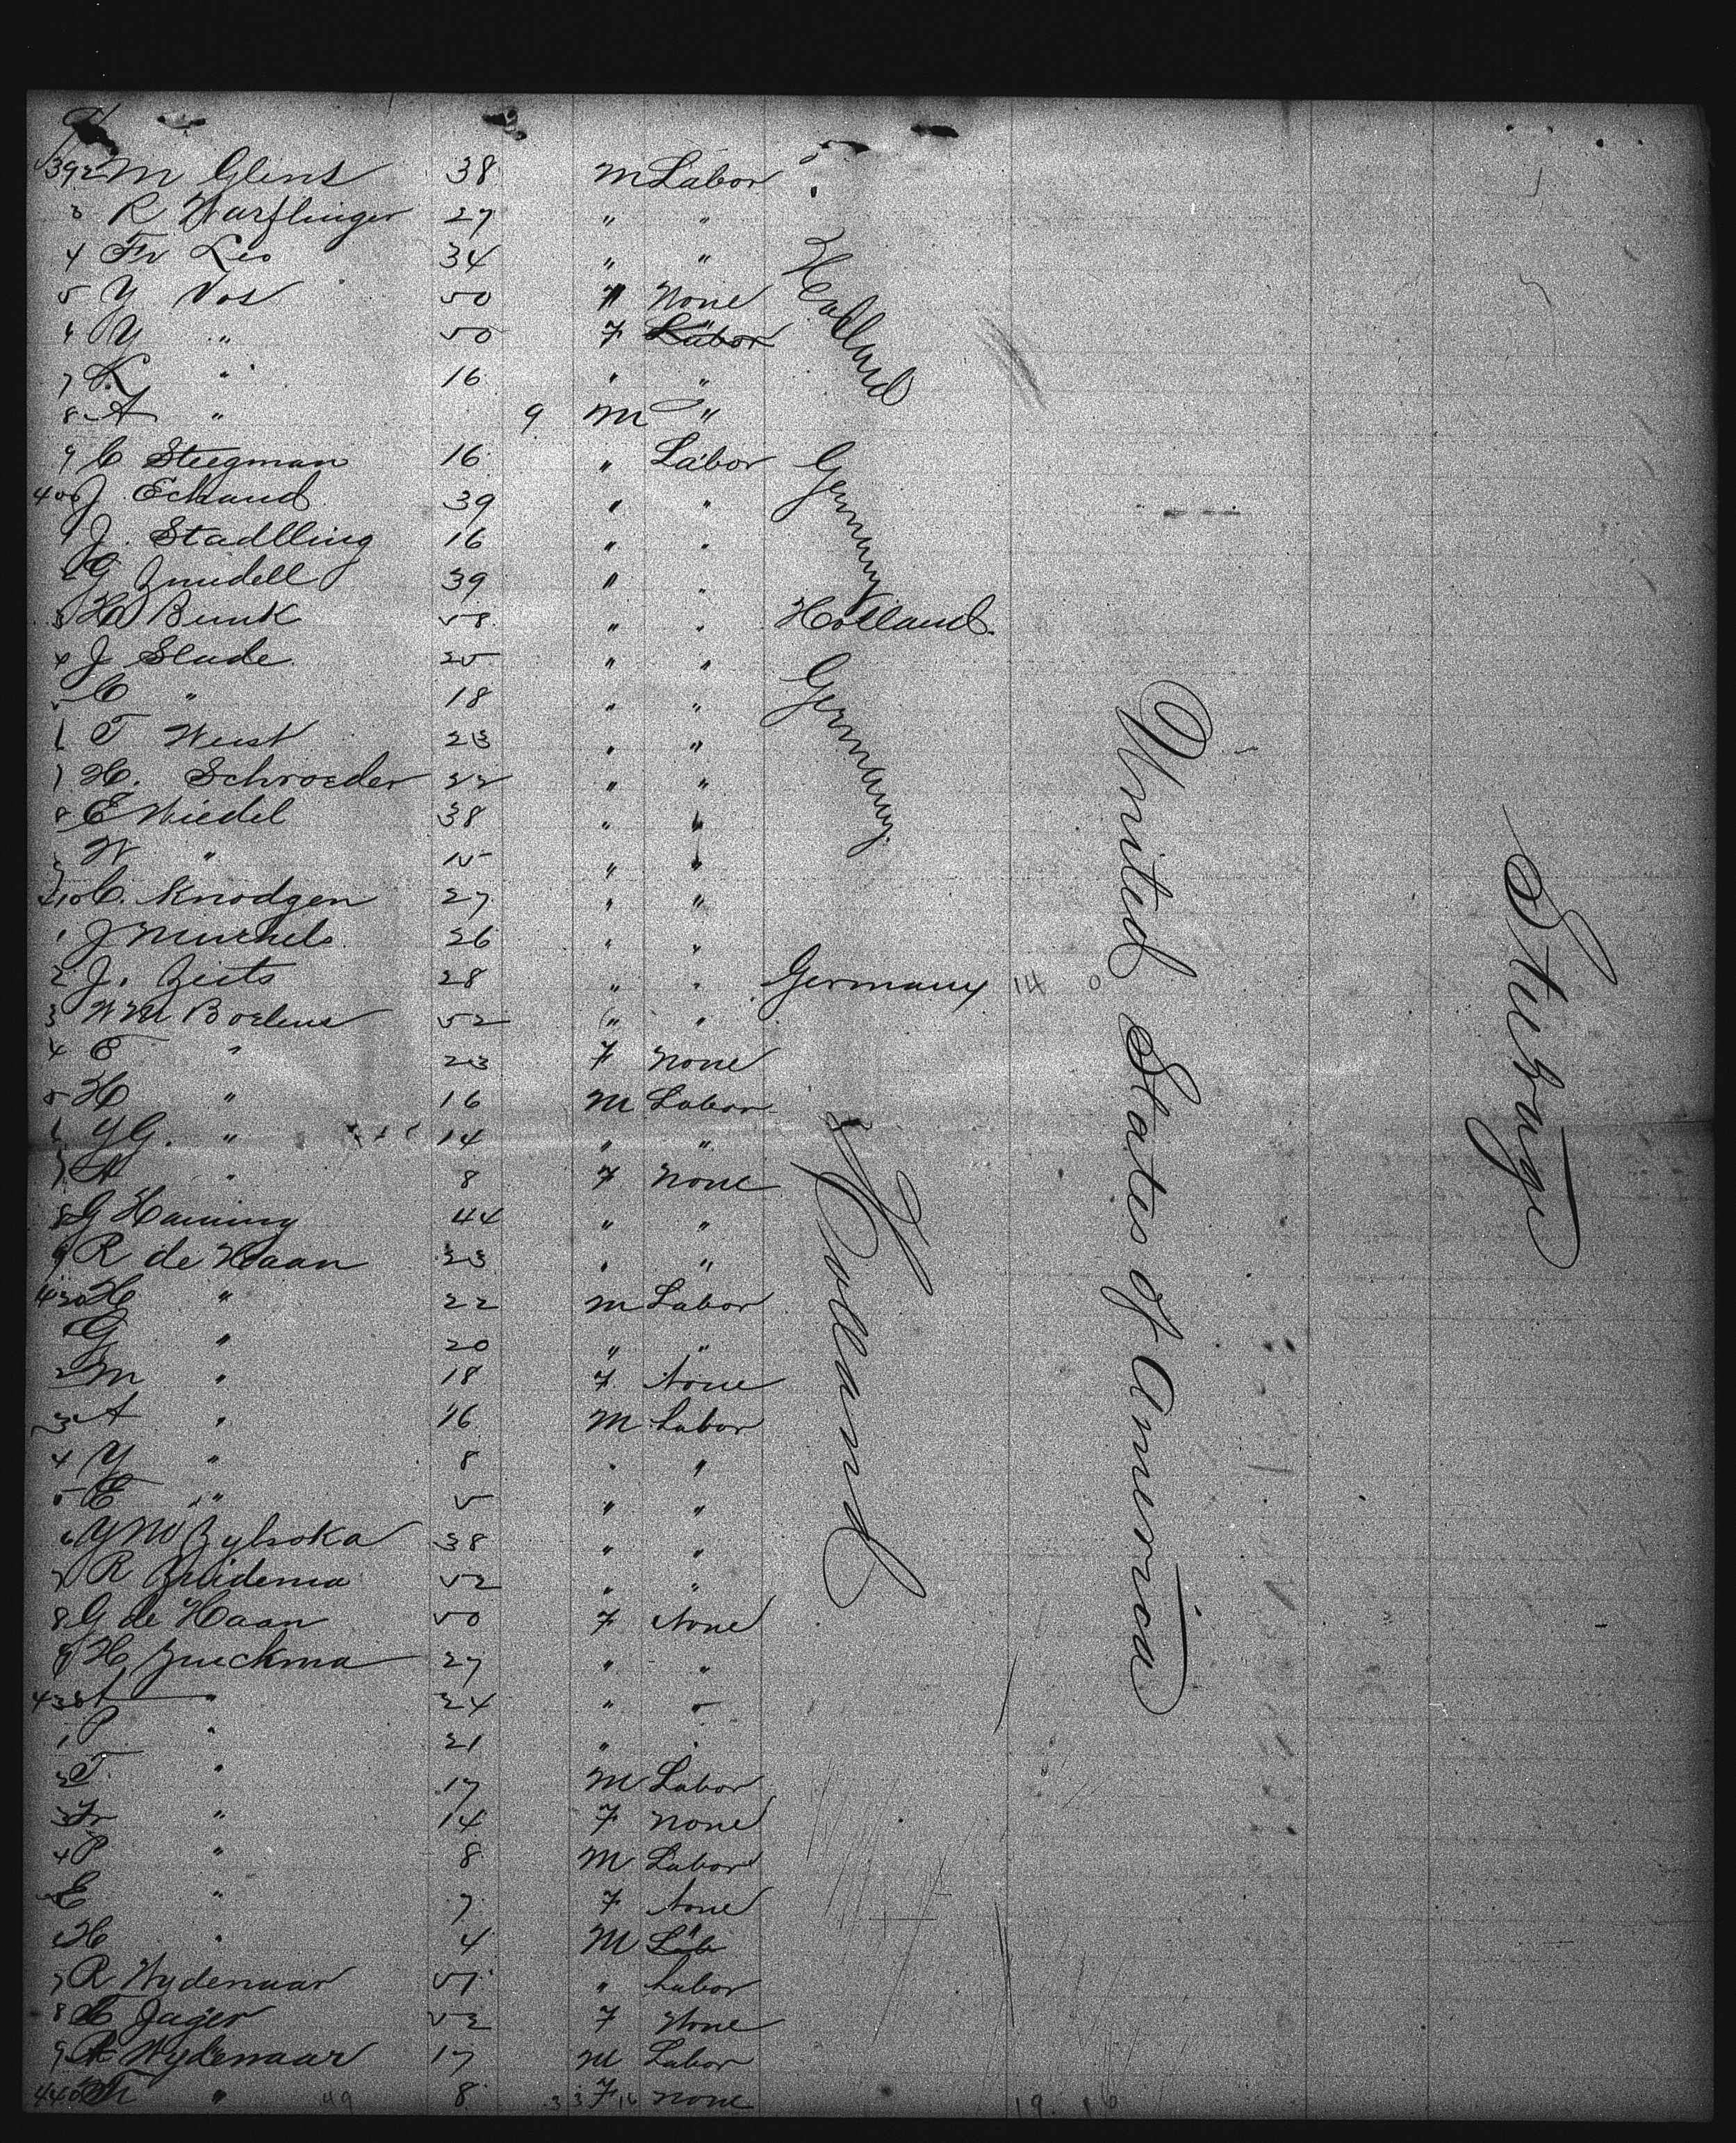 392 M Glens 38 M Labor
3 R Warflinger 27 " "
4 Fr Leo 34 " "
Holland
5 Y Vos 50 " None
6 Y " 50 F "
7 K " 16 " "
8 A " 9 M "
9 C Steegman 16 " Labor
Germany
400 J. Eckand 39 " "
1 J. Stadlling 16 " "
2 G Zmidell 39 " "
3 H Bunk 58 " " Holland.
4 J Slade 25 " "
Germany
5 C " 18 " "
6 T Weist 23 " "
7 H. Schroeder 22 " "
8 E Wiedel 38 " "
9 W " 15 " "
410 C. Knodgen 27 " "
1 J 26 " "
2 J. Zeits 28 " " Germany 14 0
3 WM Boelens 52 " "
4 T " 23 F None
5 H " 16 M Labor
6 YG. " 14 " "
7 A " 8 F None
Holland
8 G Hanning 44 " "
9 R de Haan 23 " "
420 H " 22 M Labor
1 G " 20 " "
2 M " 18 F None
3 A " 16 M Labor
4 Y " 8 " "
5 E " 5 " "
6 YW Zylsoka 38 " "
7 R Zuidema 52 " "
8 G de Haan 50 F None
9 H Zuickma 27 " "
430 A " 24 " "
1 P " 21 " "
2 T. " 17 M Labor
3 Fr " 14 F None
4 P " 8 M Labor
5 E " 7 F None
6 H " 4 M "
7 R Wydenaar 51 " Labor
8 C Jager 52 F None
9 R Wydenaar 17 M Labor
440 M " 49 8 3 3 F 16 None 19. 16
United States of America
Steerage